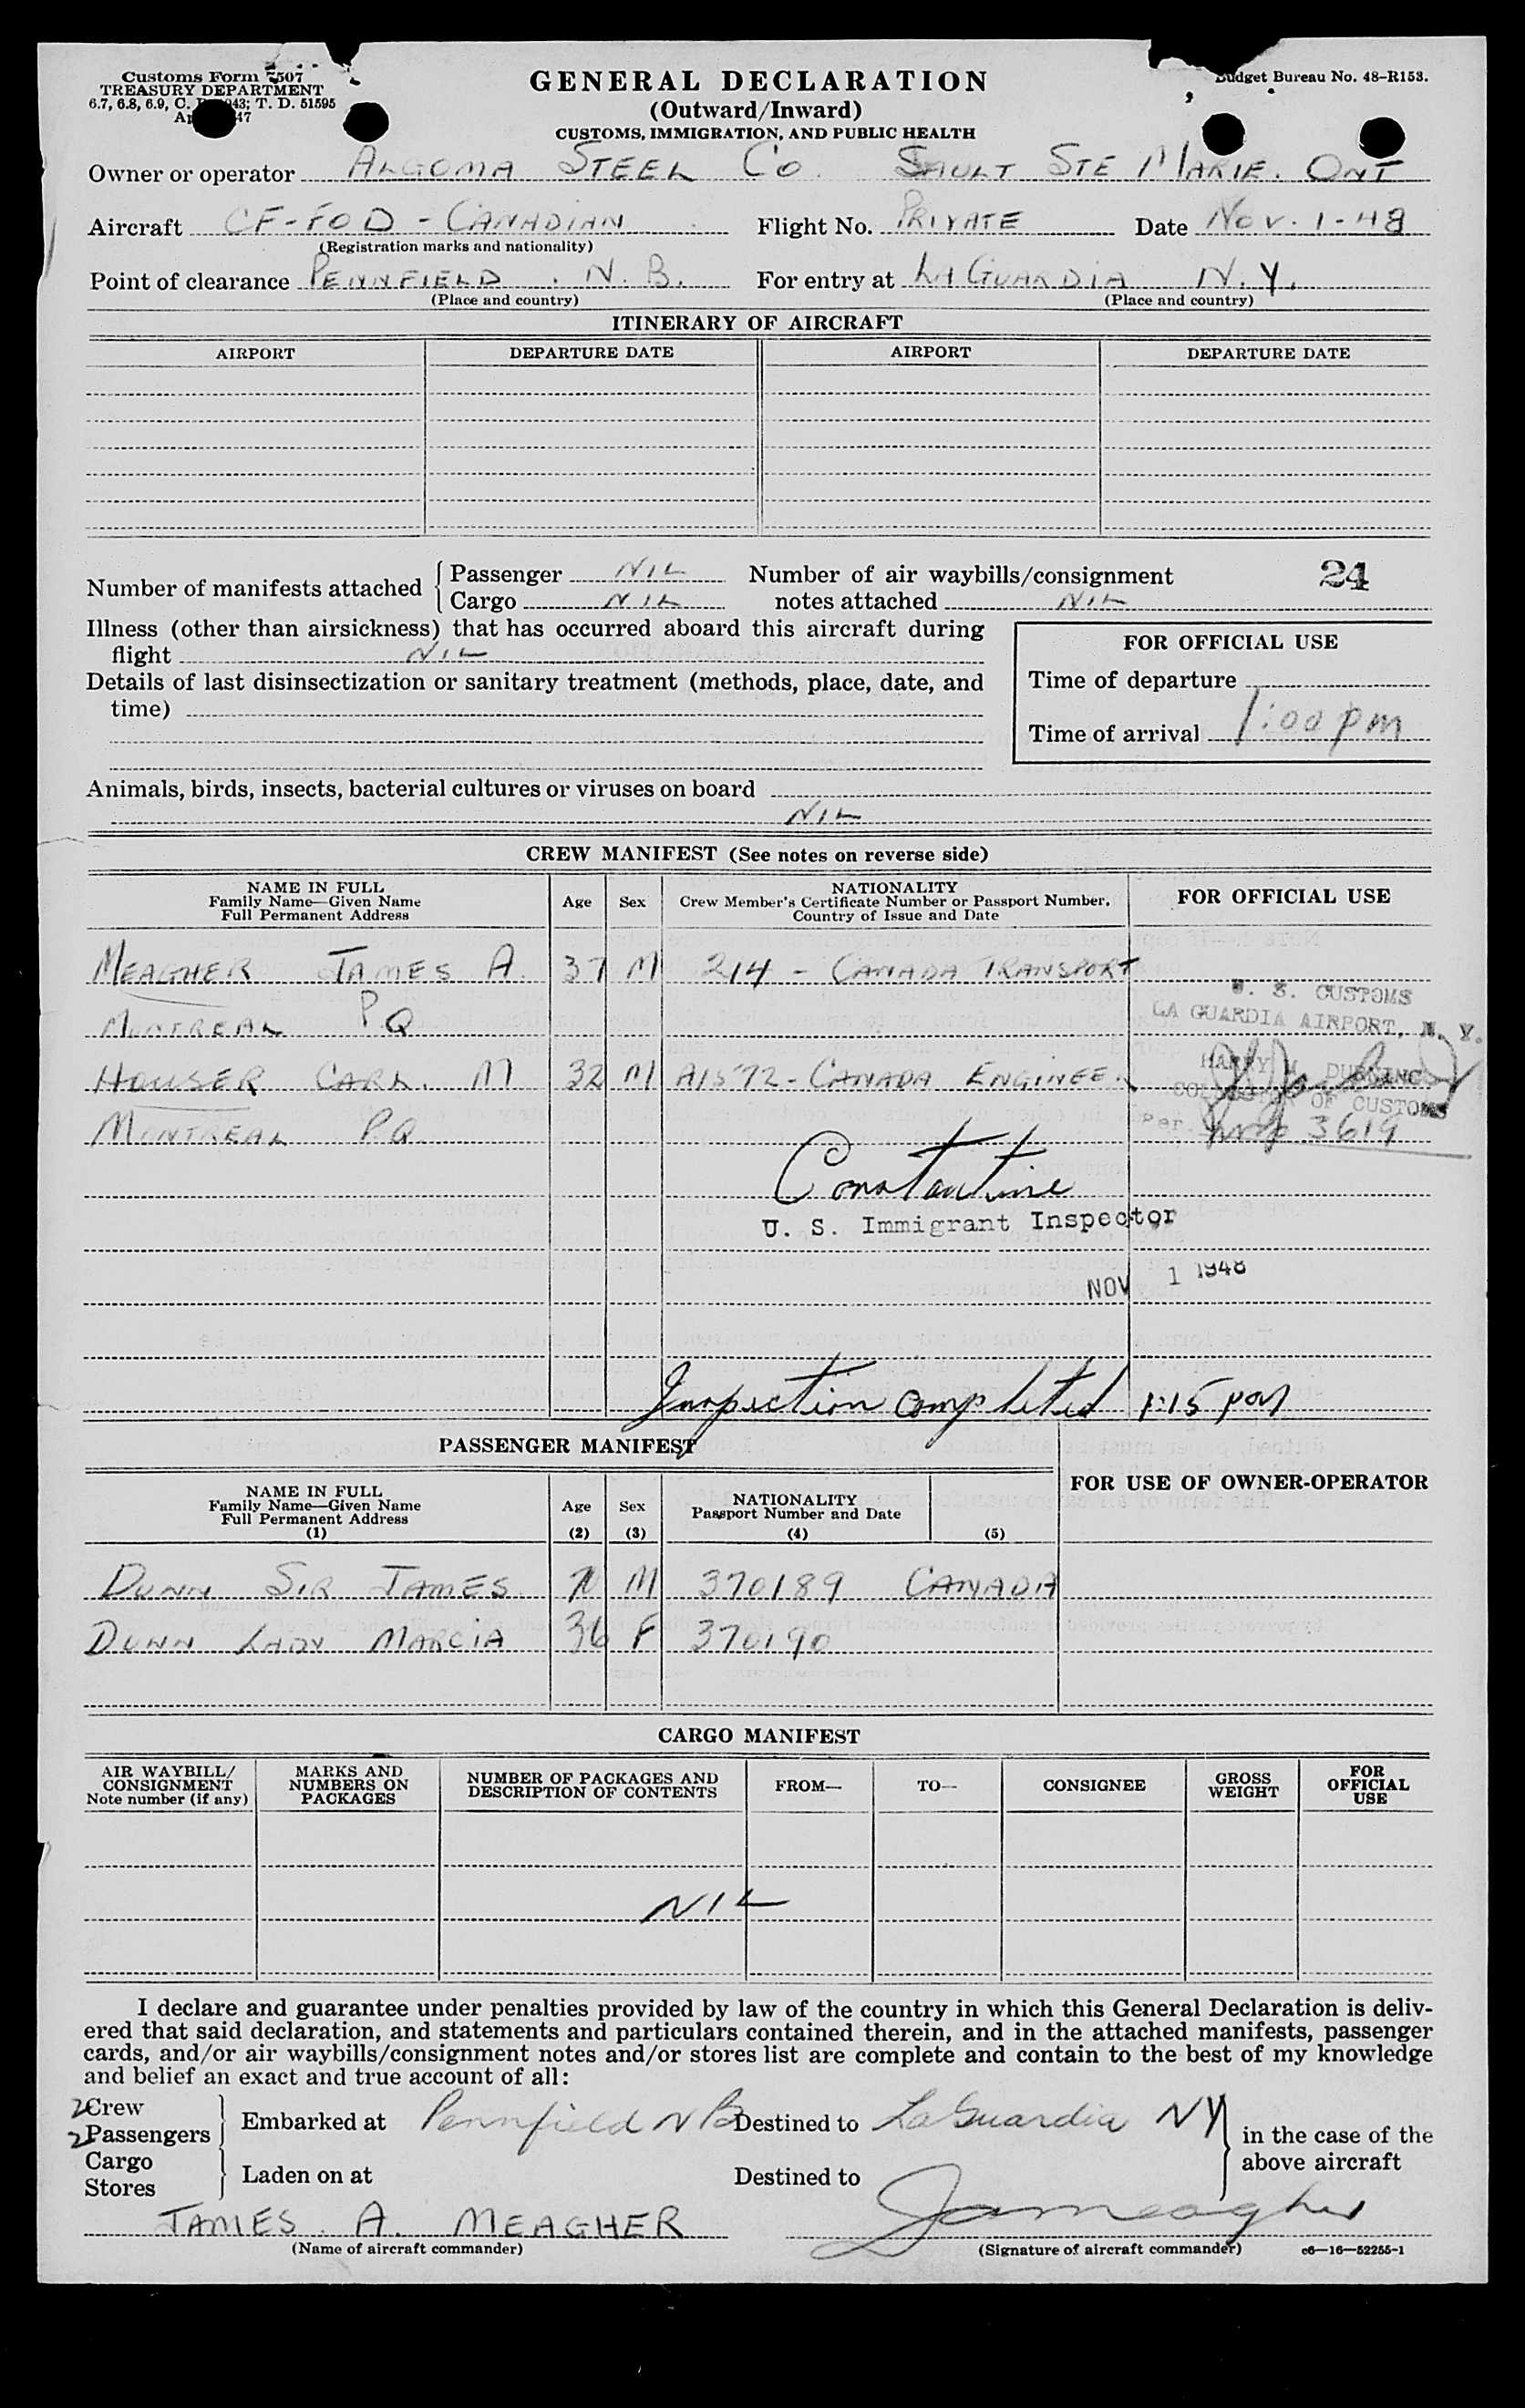 Customs Form 7507
TREASURY DEPARTMENT
6.7, 6.8, 6.9, C. 43; T. D. 51595
47
GENERAL DECLARATION
(Outward/Inward)
CUSTOMS, IMMIGRATION, AND PUBLIC HEALTH
Budget Bureau No. 48-R153.
Owner or operator ALGOMA STEEL CO. SAULT STE MARIE. ONT
Aircraft CF-FOD - CANADIAN Flight No. PRIVATE Date NOV. 1-48
(Registration marks and nationality)
Point of clearance PENNFIELD . N. B. For entry at LA GUARDIA N.Y.
(Place and country) (Place and country)
ITINERARY OF AIRCRAFT
AIRPORT DEPARTURE DATE AIRPORT DEPARTURE DATE
Number of manifests attached { Passenger NIL Number of air waybills/consignment 24
Cargo NIL notes attached NIL
Illness (other than airsickness) that has occurred aboard this aircraft during
flight NIL
Details of last disinsectization or sanitary treatment (methods, place, date, and
time)
FOR OFFICIAL USE
Time of departure
Time of arrival 1:00 pm
Animals, birds, insects, bacterial cultures or viruses on board
NIL
CREW MANIFEST (See notes on reverse side)
NAME IN FULL
Family Name—Given Name
Full Permanent Address
Age Sex
NATIONALITY
Crew Member's Certificate Number or Passport Number,
Country of Issue and Date
FOR OFFICIAL USE
MEAGHER JAMES A. 37 M 214 - CANADA TRANSPORT
MONTREAL P Q
HOUSER CARL. M 32 M A1572 - CANADA ENGINEER
MONTREAL P.Q.
U. S. CUSTOMS
LA GUARDIA AIRPORT, N. Y.
HARRY M. DURNING
COLLECTOR OF CUSTOMS
Per 3619
Constantine
U. S. Immigrant Inspector
NOV 1 1948
Inspection completed 1:15 pm
PASSENGER MANIFEST
FOR USE OF OWNER-OPERATOR
NAME IN FULL
Family Name—Given Name
Full Permanent Address
(1)
Age
(2)
Sex
(3)
NATIONALITY
Passport Number and Date
(4) (5)
DUNN SIR JAMES M 370189 CANADA
DUNN LADY MARCIA 36 F 370190
CARGO MANIFEST
AIR WAYBILL/
CONSIGNMENT
Note number (if any)
MARKS AND
NUMBERS ON
PACKAGES
NUMBER OF PACKAGES AND
DESCRIPTION OF CONTENTS
FROM— TO— CONSIGNEE
GROSS
WEIGHT
FOR
OFFICIAL
USE
NIL
I declare and guarantee under penalties provided by law of the country in which this General Declaration is deliv-
ered that said declaration, and statements and particulars contained therein, and in the attached manifests, passenger
cards, and/or air waybills/consignment notes and/or stores list are complete and contain to the best of my knowledge
and belief an exact and true account of all:
2 Crew
2 Passengers } Embarked at Pennfield N B Destined to LaGuardia NY } in the case of the
Cargo above aircraft
Stores } Laden on at Destined to
JAMES. A. MEAGHER JAMeagher
(Name of aircraft commander) (Signature of aircraft commander) c6—16—52255-1